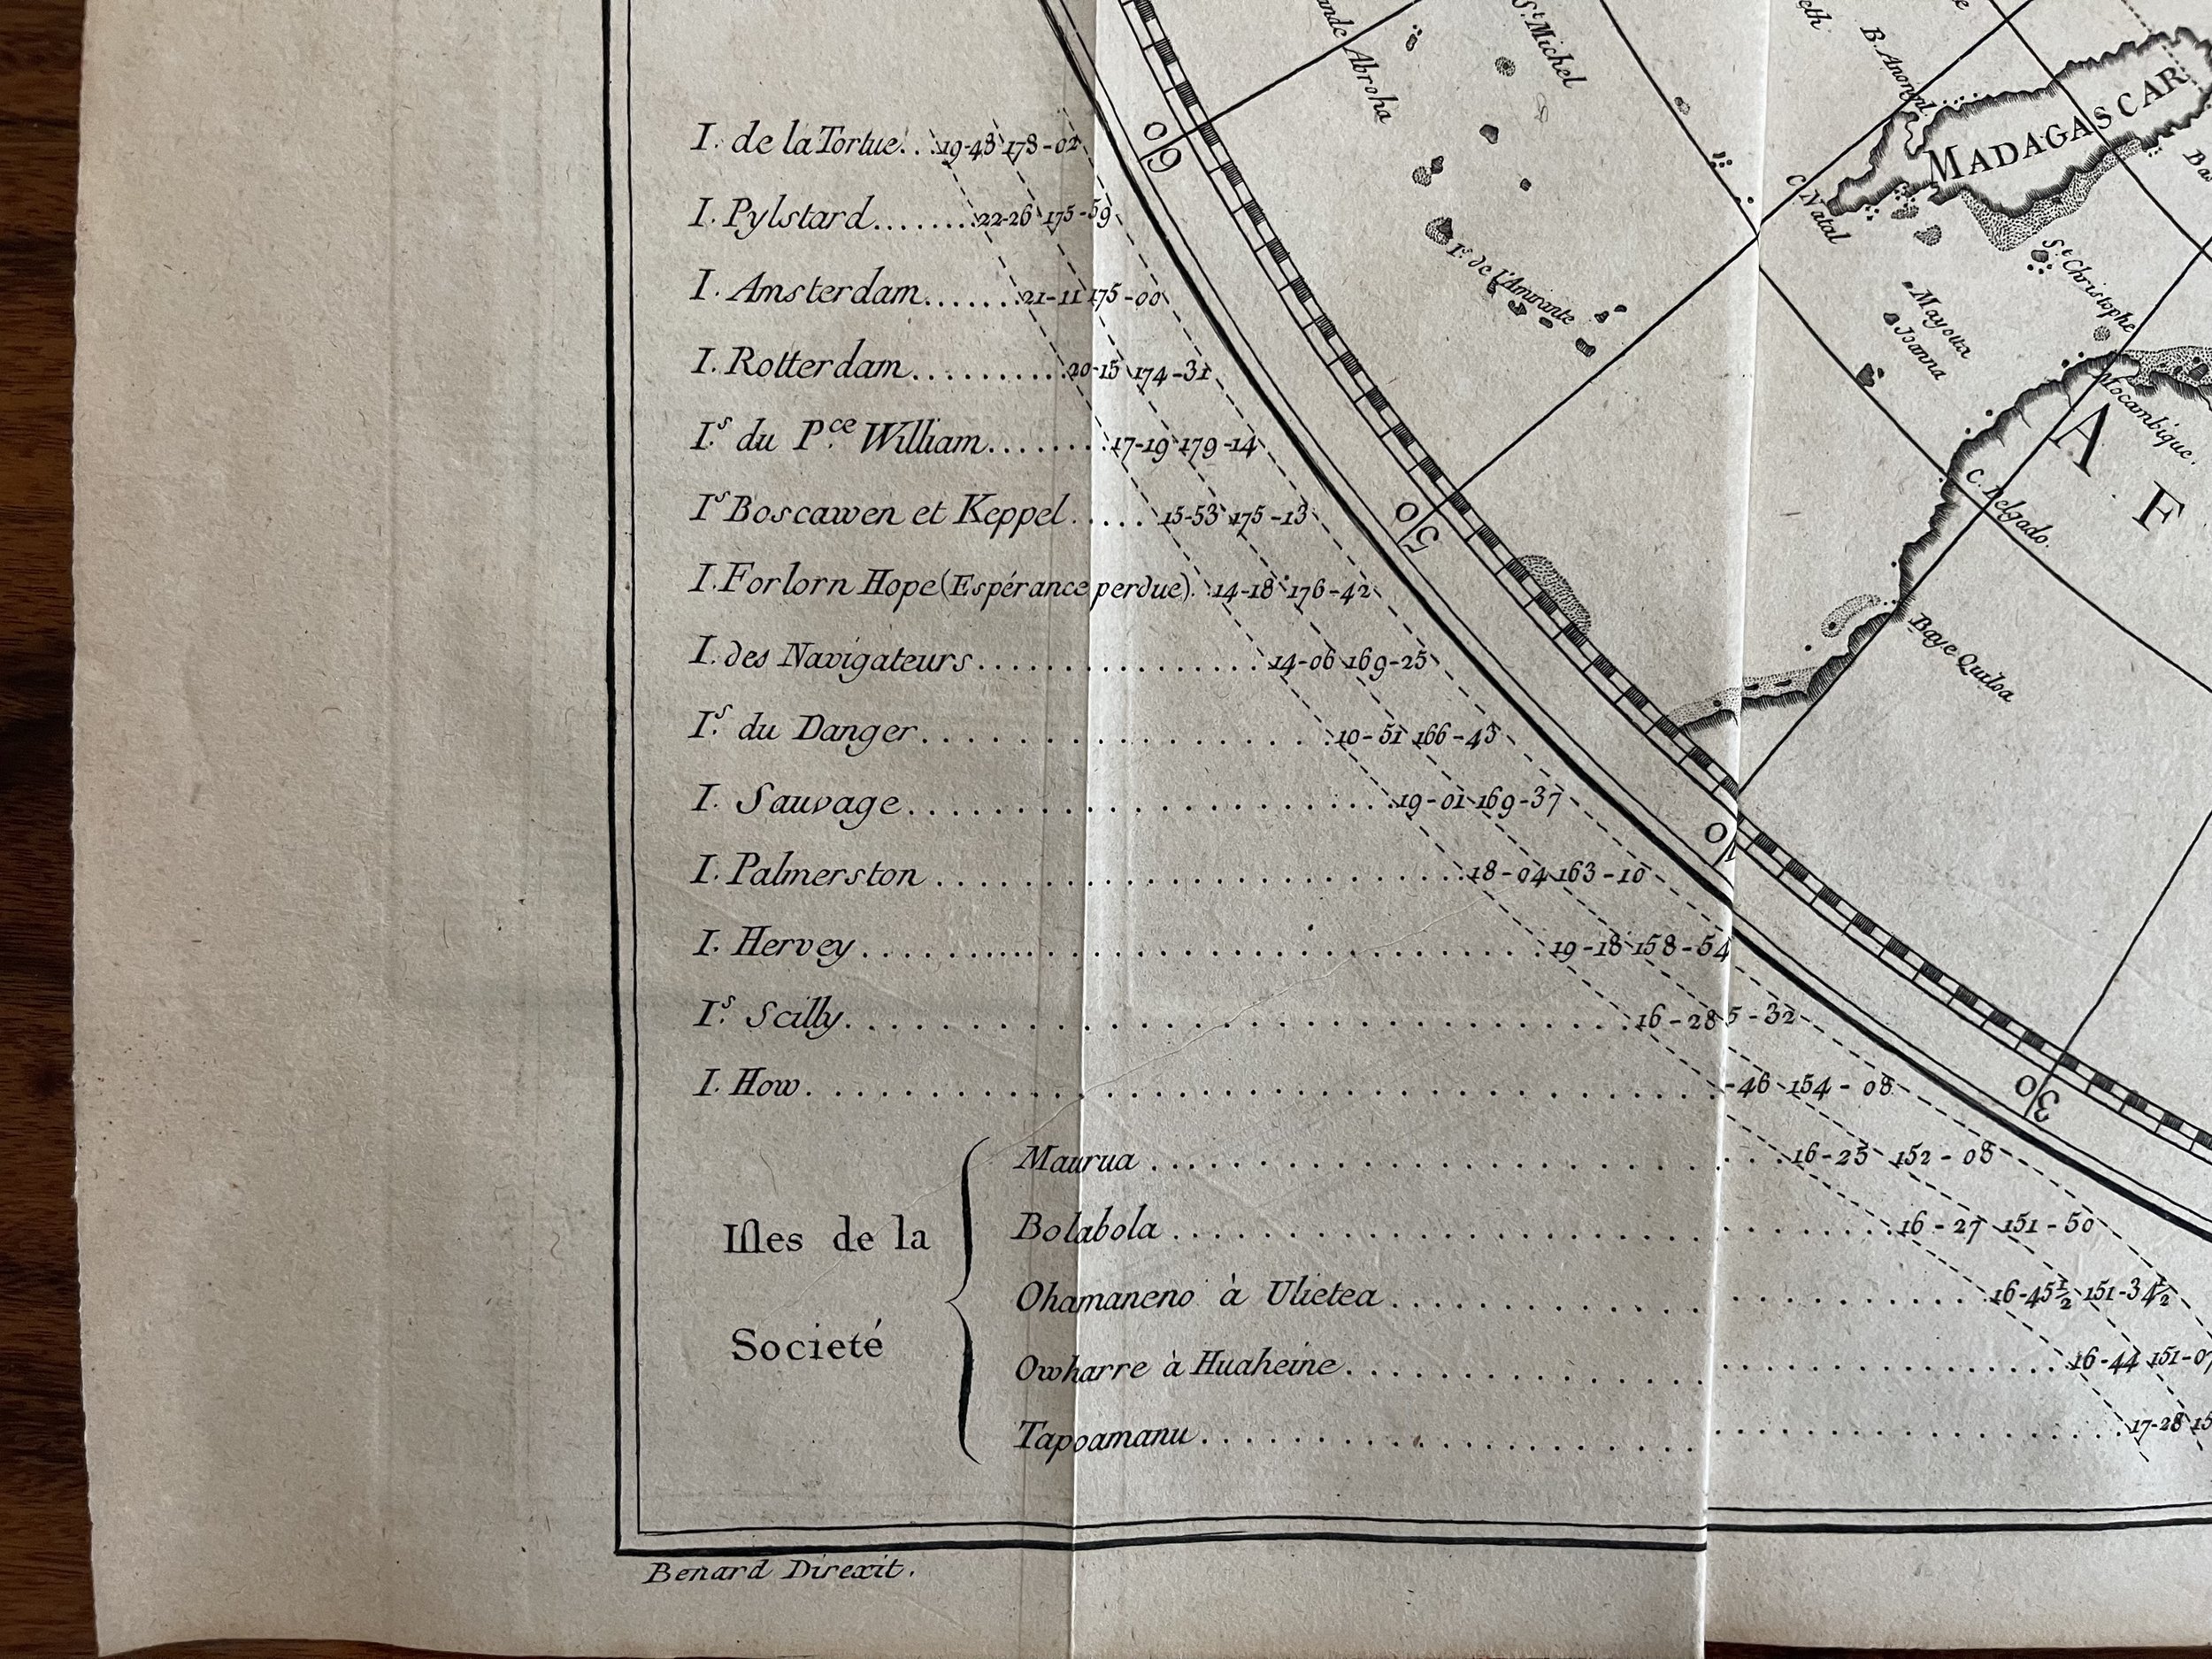 I. de la Tortue... 19-48 178-02
I. Pylstard....... 22-26 175-59
I. Amsterdam....... 21-11 175-00
I. Rotterdam.......... 20-15 174-31
I.s du P.ce William........ 17-19 179-14
I.s Boscawen et Keppel..... 15-53 175-13
I. Forlorn Hope (Espérance perdue). 14-18 176-42
I. des Navigateurs............... 14-06 169-25
I.s du Danger................. 10-51 166-43
I. Sauvage.................... 19-01 169-37
I. Palmerston....................... 18-04 163-10
I. Hervey............................ 19-18 158-54
I.s Scilly............................... 16-28 5-32
I. How.................................. -46 154-08
Isles de la Societé
Maurua............................ 16-25 152-08
Bolabola............................... 16-27 151-50
Ohamaneno à Ulietea........................... 16-45½ 151-34½
Owharre à Huaheine............................ 16-44 151-07
Tapoamanu.................................. 17-28 15
Benard Direxit.
60
50
30
Abroha
St. Michel
B. Anoncel
MADAGASCAR
C. Natal
I.s de l'Amirante
St. Christophe
Mayotta
Joanna
Mocambique.
A F
C. Delgado.
Baye Quiloa